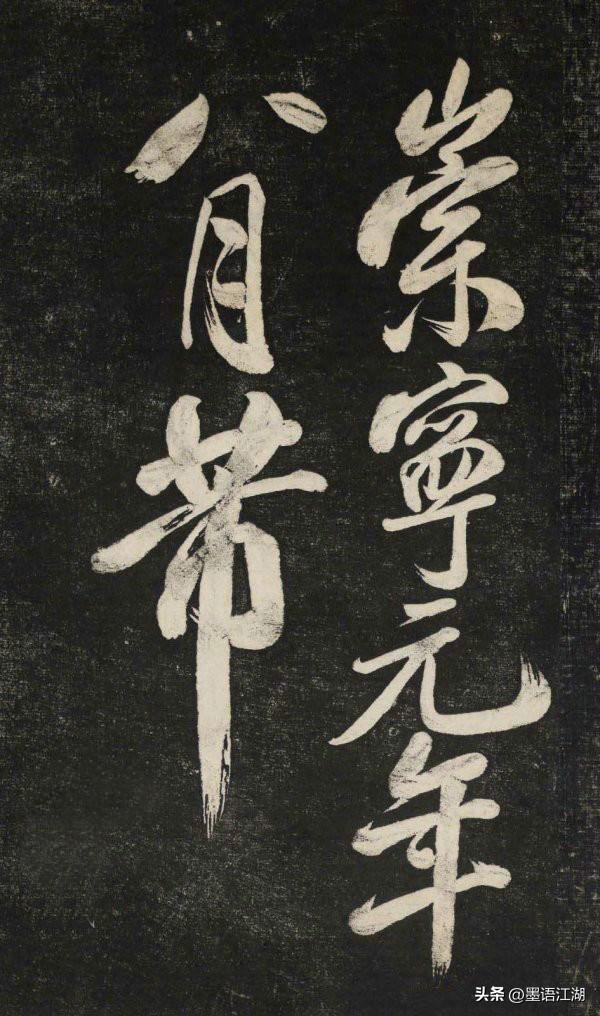 崇寧元年
八月芾
头条 @墨语江湖